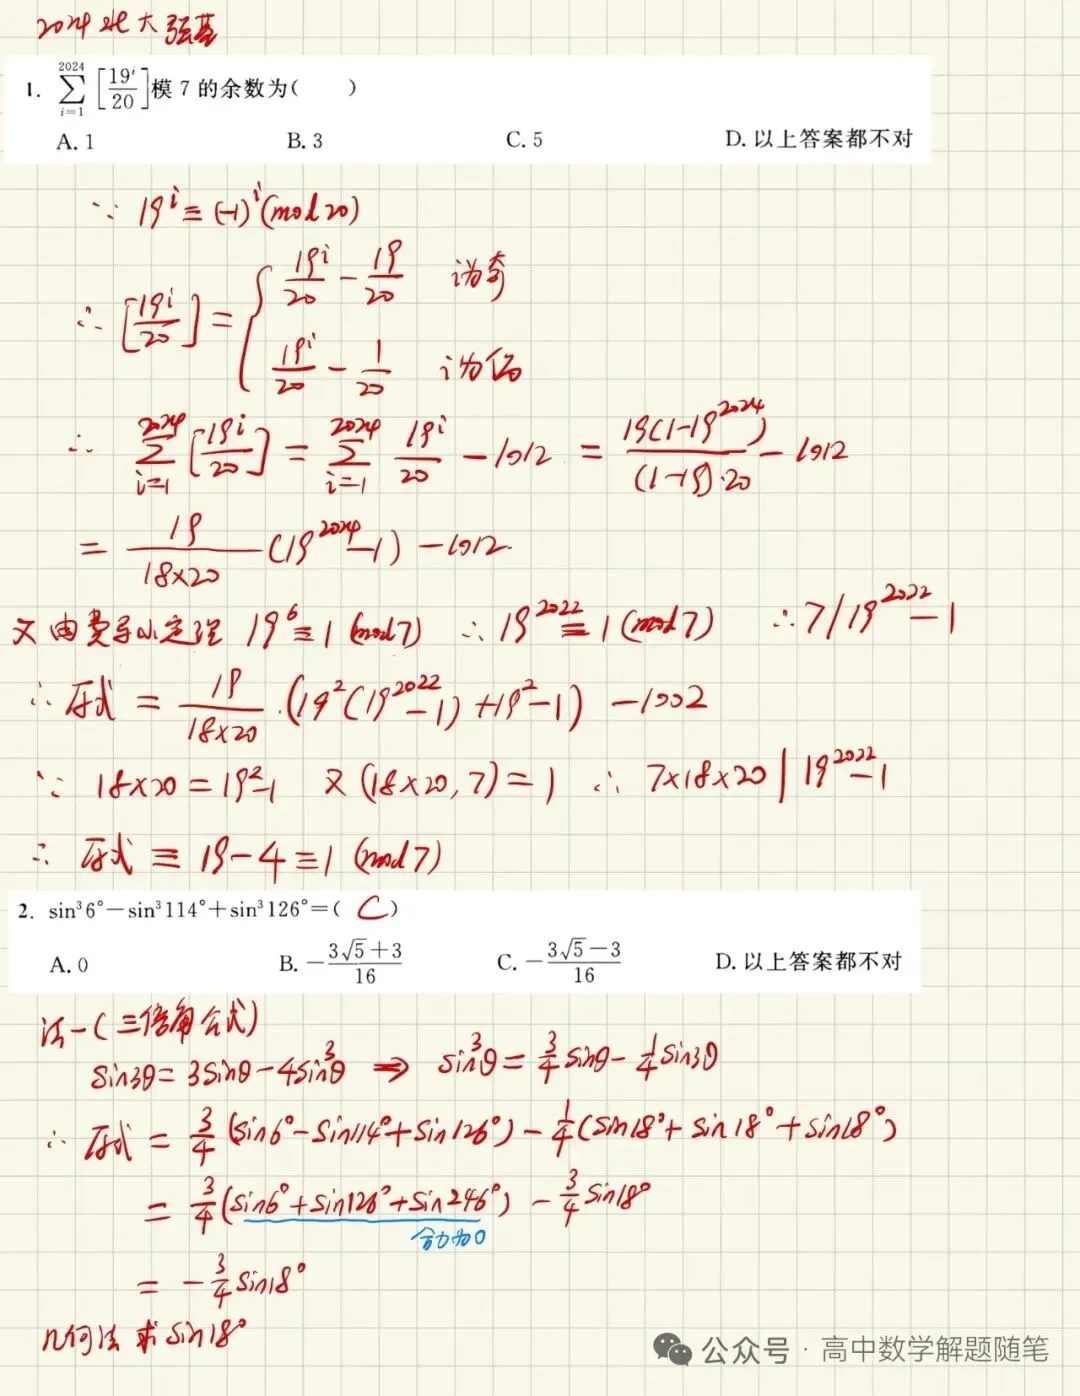 2024北大强基
1. $\sum_{i=1}^{2024}\left[\frac{19^i}{20}\right]$模 7 的余数为(  )
A. 1 B. 3 C. 5 D. 以上答案都不对
∵ $19^i \equiv (-1)^i \pmod{20}$
∴ $\left[\frac{19^i}{20}\right] = \begin{cases} \frac{19^i}{20} - \frac{19}{20} & i为奇 \\ \frac{19^i}{20} - \frac{1}{20} & i为偶 \end{cases}$
∴ $\sum_{i=1}^{2024}\left[\frac{19^i}{20}\right] = \sum_{i=1}^{2024}\frac{19^i}{20} - 1012 = \frac{19(1-19^{2024})}{(1-19)\cdot 20} - 1012$
$= \frac{19}{18\times20}(19^{2024}-1) - 1012.$
又由费马小定理 $19^6 \equiv 1 \pmod 7$ ∴ $19^{2022} \equiv 1 \pmod 7$ ∴ $7 / 19^{2022}-1$
∴ 原式 $= \frac{19}{18\times20}\cdot(19^2(19^{2022}-1)+19^2-1) - 1002$
∵ $18\times20 = 19^2-1$ 又 $(18\times20, 7)=1$ ∴ $7\times18\times20 \mid 19^{2022}-1$
∴ 原式 $\equiv 19-4 \equiv 1 \pmod 7$
2. $\sin^3 6°-\sin^3 114°+\sin^3 126°=$( C )
A. 0 B. $-\frac{3\sqrt{5}+3}{16}$ C. $-\frac{3\sqrt{5}-3}{16}$ D. 以上答案都不对
法一(三倍角公式)
$\sin3\theta = 3\sin\theta - 4\sin^3\theta \Rightarrow \sin^3\theta = \frac{3}{4}\sin\theta - \frac{1}{4}\sin3\theta$
∴ 原式 $= \frac{3}{4}(\sin6°-\sin114°+\sin126°) - \frac{1}{4}(\sin18°+\sin18°+\sin18°)$
$= \frac{3}{4}(\sin6°+\sin126°+\sin246°) - \frac{3}{4}\sin18°$
合力为0
$= -\frac{3}{4}\sin18°$
几何法求 $\sin18°$
公众号 · 高中数学解题随笔